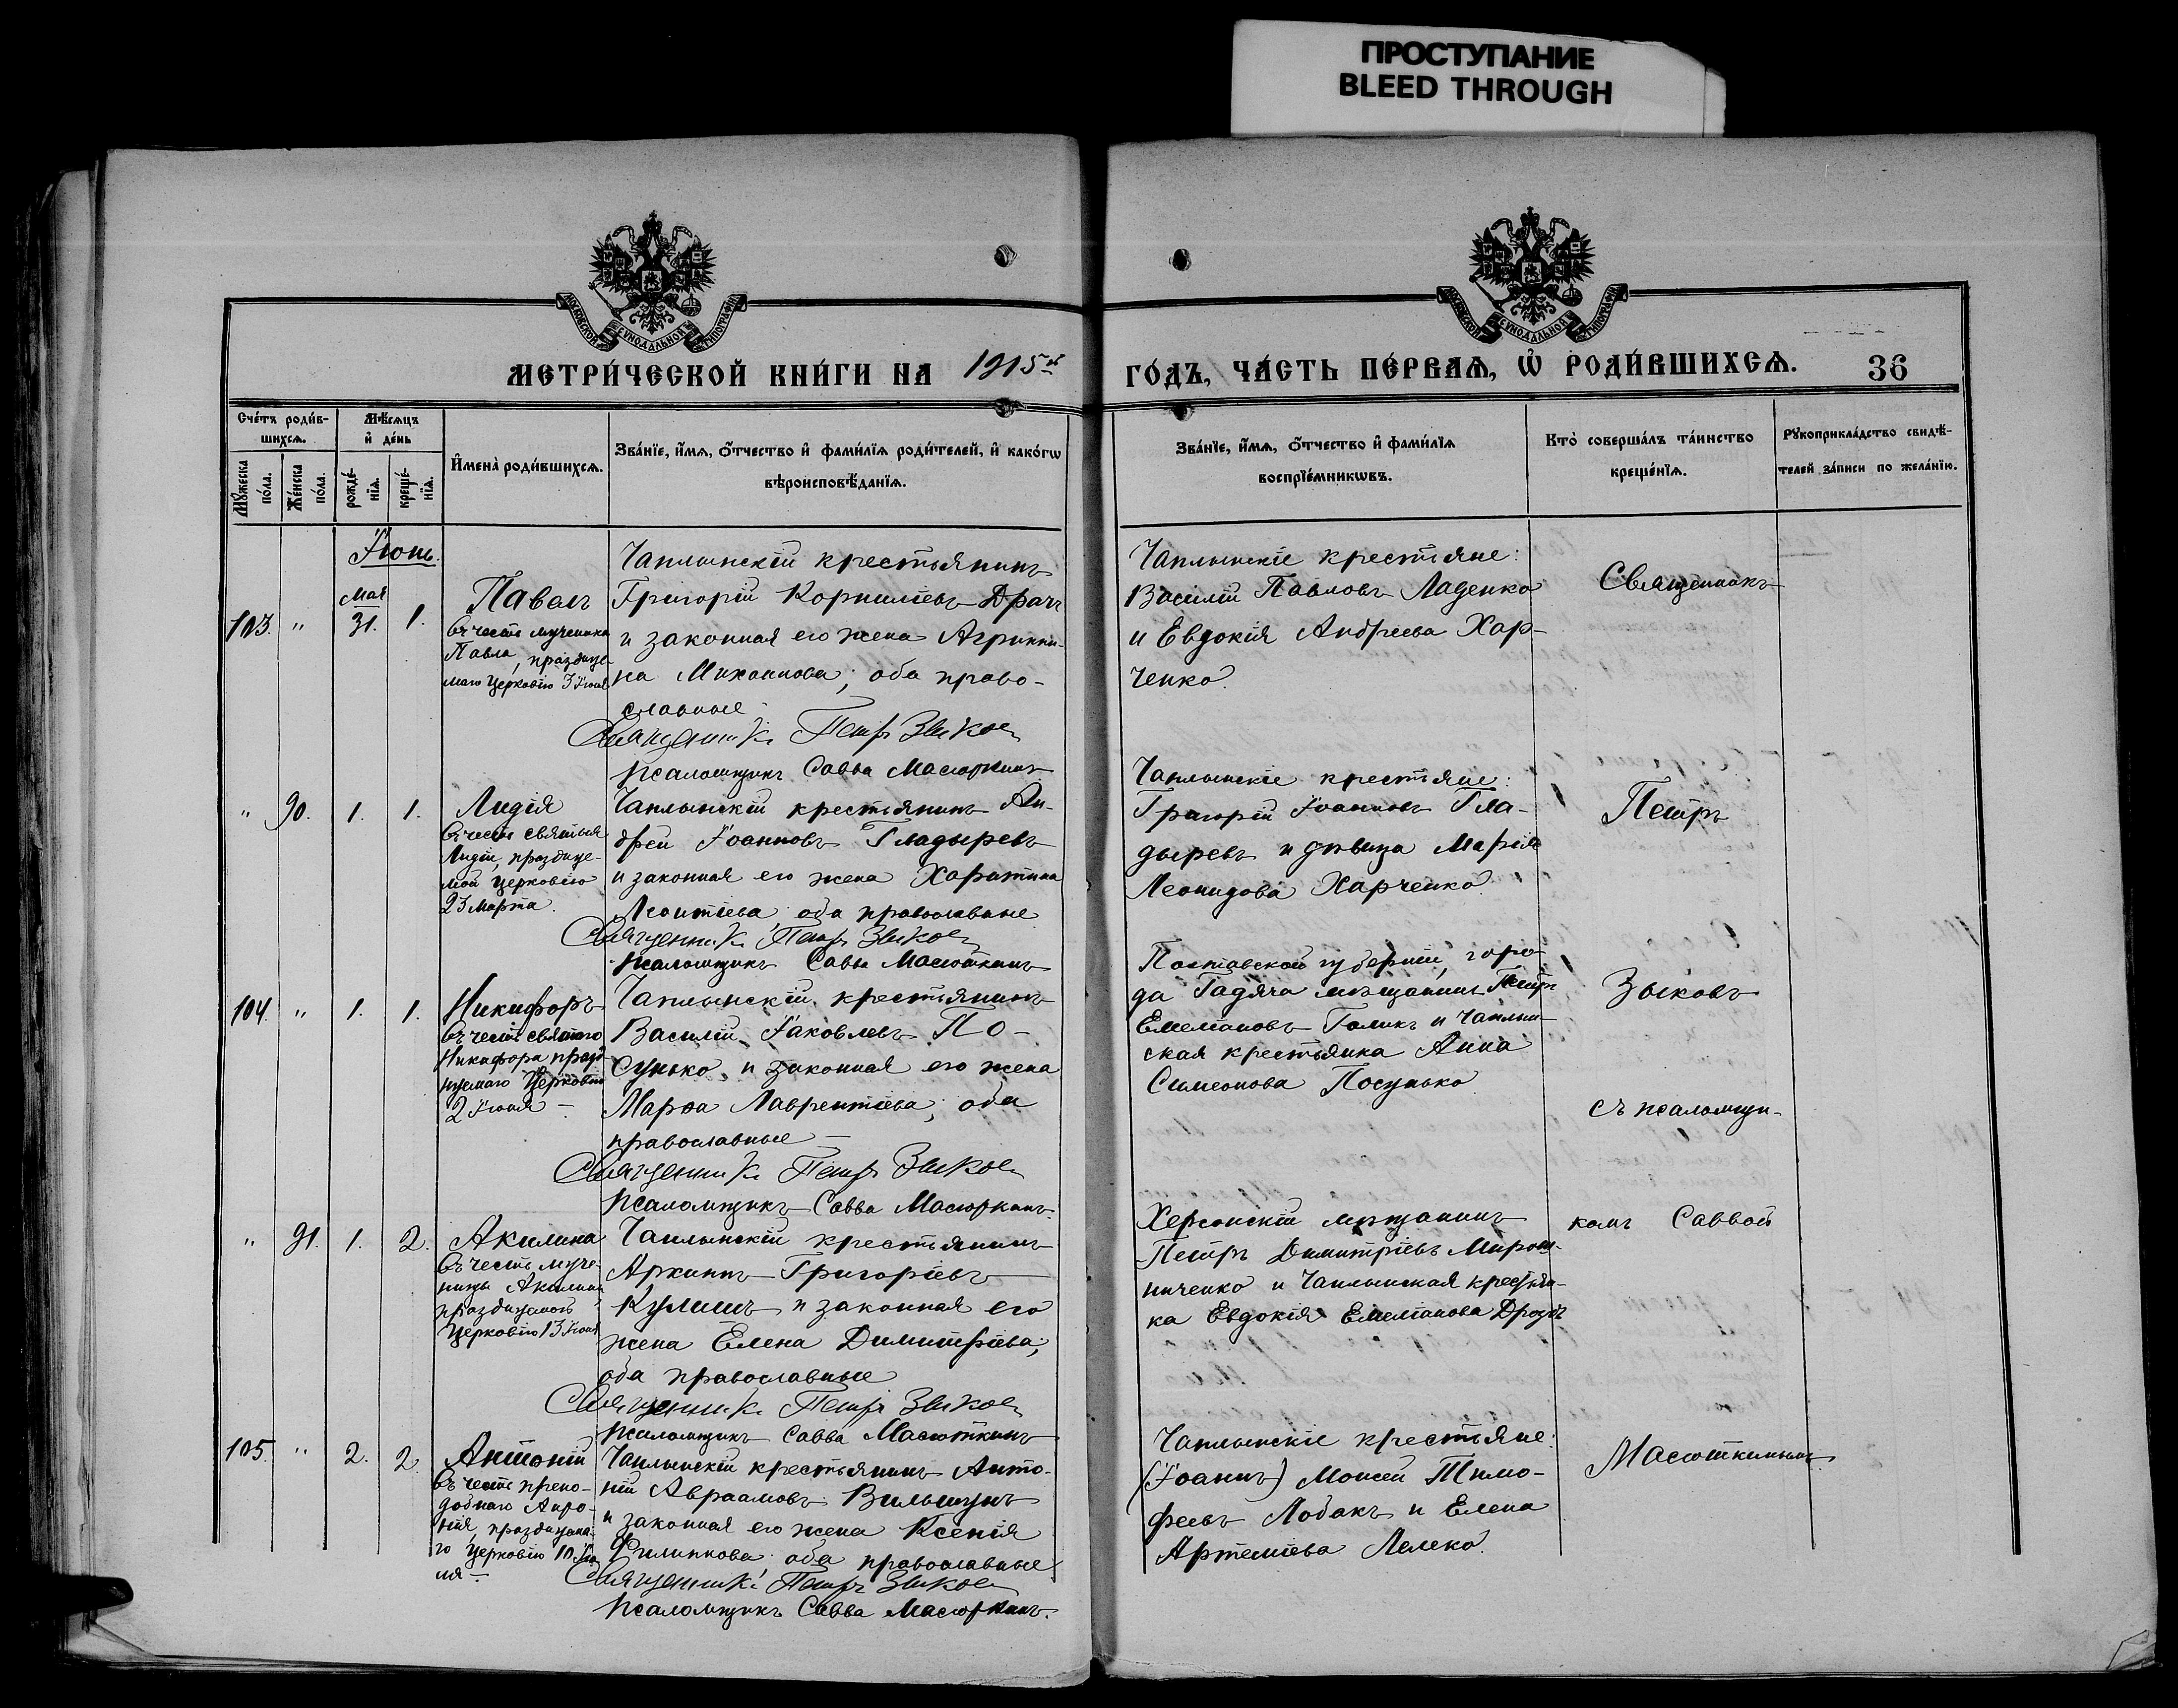 ПРОСТУПАНИЕ
BLEED THROUGH
МОСКОВСКОЙ СѴНОДАЛЬНОЙ ТИПОГРАФІИ
МОСКОВСКОЙ СѴНОДАЛЬНОЙ ТИПОГРАФІИ
МЕТРИ́ЧЕСКОЙ КНИ́ГИ НА 1915й
ГО́ДЪ, ЧА́СТЬ ПЕ́РВАѦ, Ѡ҆ РОДИ́ВШИХСѦ. 36
Сче́тъ роди́в-
шихсѧ.
Мѣ́сѧцъ
и҆ де́нь
Мꙋ́жеска по́ла.
Же́нска по́ла.
рожде́-
нїѧ.
креще́-
нїѧ.
И҆мена̀ роди́вшихсѧ.
Зва́нїе, и҆́мѧ, ѻ҆́тчество и҆ фами́лїѧ роди́телей, и҆ како́гѡ
вѣроисповѣ́данїѧ.
Зва́нїе, и҆́мѧ, ѻ҆́тчество и҆ фами́лїѧ
воспрїе́мникѡвъ.
Кто̀ соверша́лъ та́инство
креще́нїѧ.
Рꙋкоприкла́дство свидѣ́-
телей за́писи по жела́нїю.
Іюнь.
103. " Мая 31. 1.
Павелъ
въ честь мученика
Павла, праздуе-
маго Церковію 3 Іюня
Чаплынскій крестьянинъ
Григорій Корниліевъ Драчъ
и законная его жена Агриппи-
на Михаилова; оба право-
славные
Священникъ Петръ Зыковъ
Псаломщикъ Савва Масюткинъ
Чаплынскіе крестьяне:
Василій Павловъ Ладенко
и Евдокія Андреева Хар-
ченко.
Священникъ
" 90. 1. 1.
Лидія
въ честь святыя
Лидіи, праздуе-
мой Церковію
23 Марта.
Чаплынскій крестьянинъ Ан-
дрей Іоанновъ Гладыревъ
и законная его жена Харитина
Леонтіева; оба православные
Священникъ Петръ Зыковъ
Псаломщикъ Савва Масюткинъ
Чаплынскіе крестьяне:
Григорій Іоанновъ Гла-
дыревъ и дѣвица Марія
Леонидова Харченко.
Петръ
104. " 1. 1.
Никифоръ
въ честь святаго
Никифора празд-
нуемаго Церковію
2 Іюня
Чаплынскій крестьянинъ
Василій Іаковлевъ По-
сунько и законная его жена
Марфа Лаврентіева; оба
православные
Священникъ Петръ Зыковъ
Псаломщикъ Савва Масюткинъ
Полтавской губерніи, горо-
да Гадяча мѣщанинъ Петръ
Емеліановъ Голикъ и Чаплын-
ская крестьянка Анна
Симеонова Посунько
Зыковъ
съ псаломщи-
" 91. 1. 2.
Акилина
въ честь муче-
ницы Акилины
празднуемой
Церковію 13 Іюня
Чаплынскій крестьянинъ
Архиппъ Григоріевъ
Кулишъ и законная его
жена Елена Димитріева;
оба православные
Священникъ Петръ Зыковъ
Псаломщикъ Савва Масюткинъ
Херсонскій мѣщанинъ
Петръ Димитріевъ Мирош-
ниченко и Чаплынская крестьян-
ка Евдокія Емеліанова Дроздъ
комъ Саввой
105. " 2. 2.
Антоній
въ честь препо-
добнаго Анто-
нія, празднуема-
го Церковію 10 Ію-
ля
Чаплынскій крестьянинъ Анто-
ній Авраамовъ Вильшунъ
и законная его жена Ксенія
Филиппова; оба православные
Священникъ Петръ Зыковъ
Псаломщикъ Савва Масюткинъ.
Чаплынскіе крестьяне:
(Іоаннъ) Моисей Тимо-
феевъ Лобакъ и Елена
Артеміева Лелеко.
Масюткинымъ